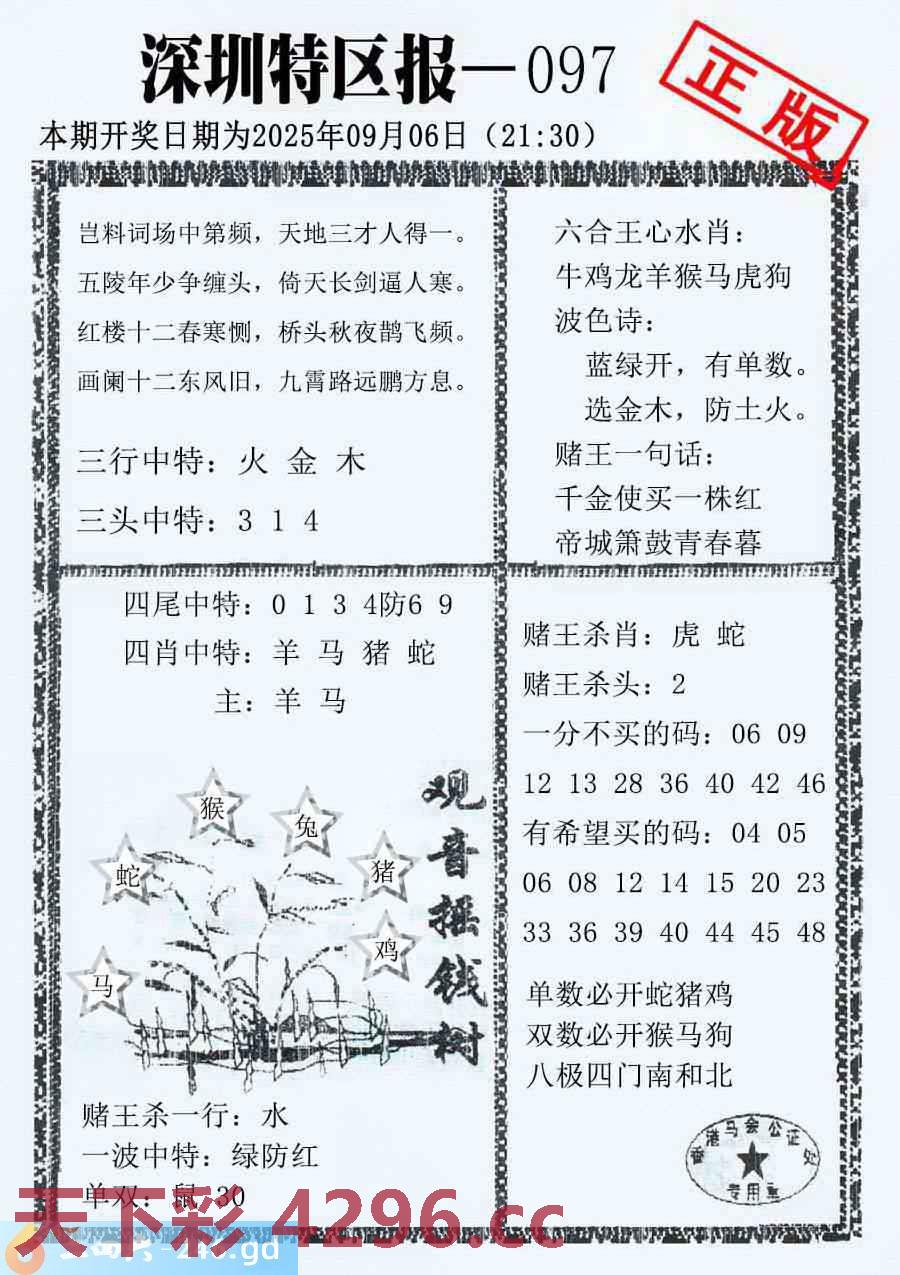 深圳特区报—097
正版
本期开奖日期为2025年09月06日（21:30）
岂料词场中第频，天地三才人得一。
五陵年少争缠头，倚天长剑逼人寒。
红楼十二春寒恻，桥头秋夜鹊飞频。
画阑十二东风旧，九霄路远鹏方息。
三行中特：火 金 木
三头中特：3 1 4
六合王心水肖：
牛鸡龙羊猴马虎狗
波色诗：
蓝绿开，有单数。
选金木，防土火。
赌王一句话：
千金使买一株红
帝城箫鼓青春暮
四尾中特：0 1 3 4防6 9
四肖中特：羊 马 猪 蛇
主：羊 马
猴
兔
蛇
猪
鸡
马
观音摇钱树
赌王杀一行：水
一波中特：绿防红
单双：鼠 30
赌王杀肖：虎 蛇
赌王杀头：2
一分不买的码：06 09
12 13 28 36 40 42 46
有希望买的码：04 05
06 08 12 14 15 20 23
33 36 39 40 44 45 48
单数必开蛇猪鸡
双数必开猴马狗
八极四门南和北
香港马会公证处
专用章
天下彩 4296.cc